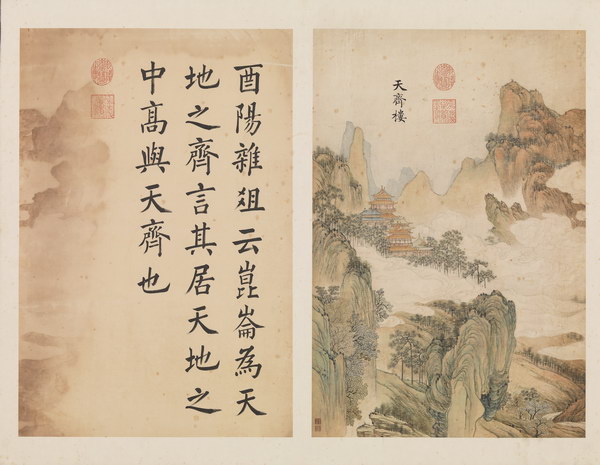 酉陽雜俎云崑崙為天
地之齊言其居天地之
中高與天齊也
天齊樓